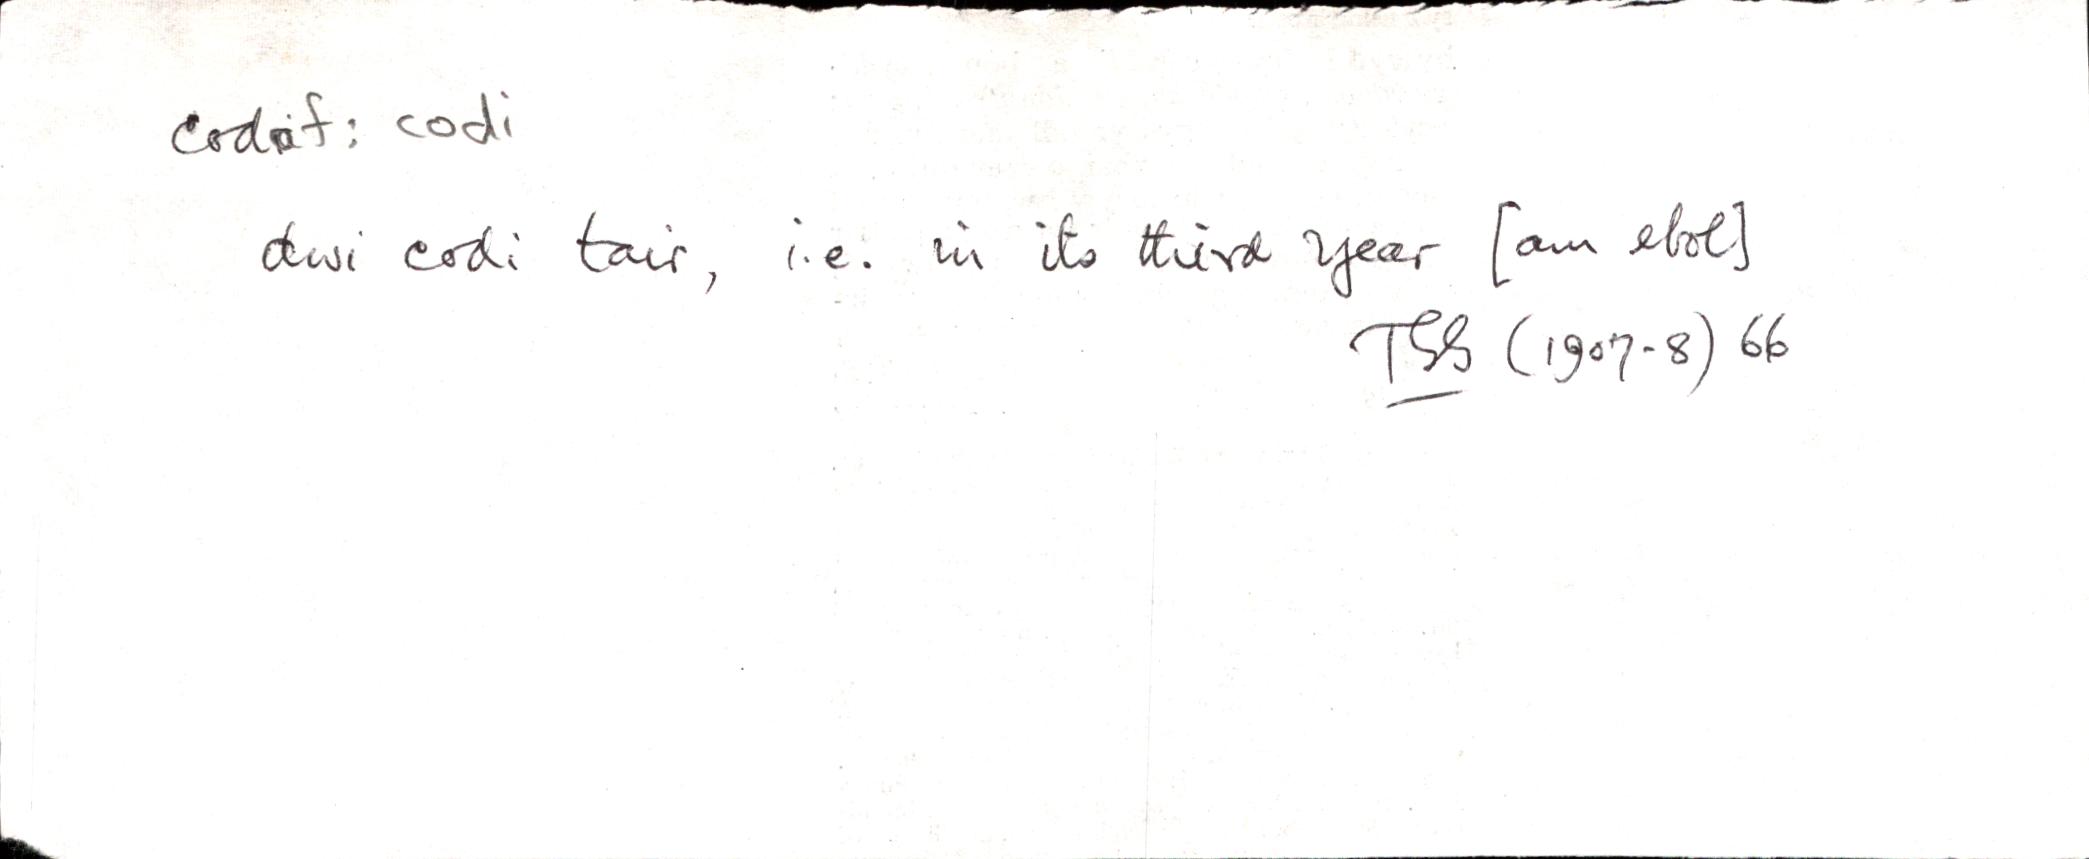 codaf: codi
dwi codi tair, i.e. in its third year [am ebol]
TGG (1907-8) 66